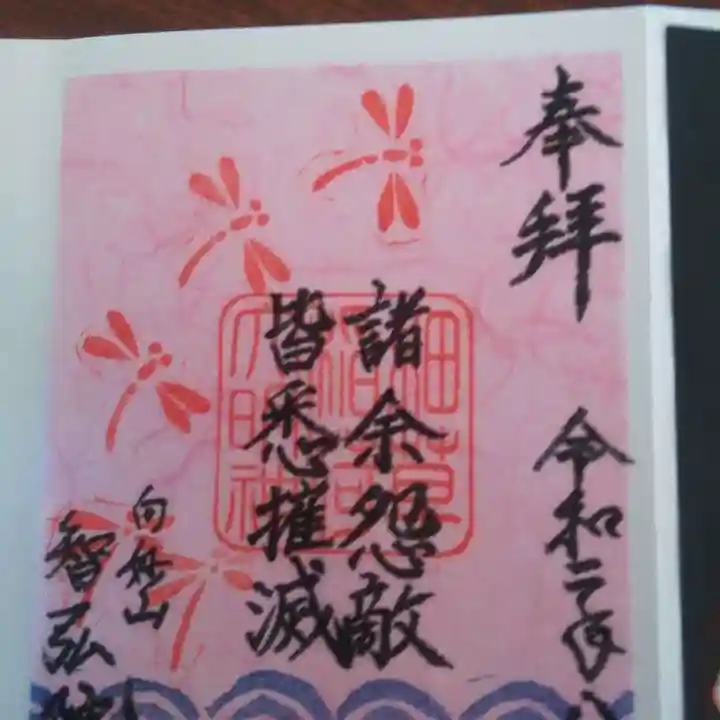 奉拝
令和二年八
諸余怨敵
皆悉摧滅
大明神
智弘